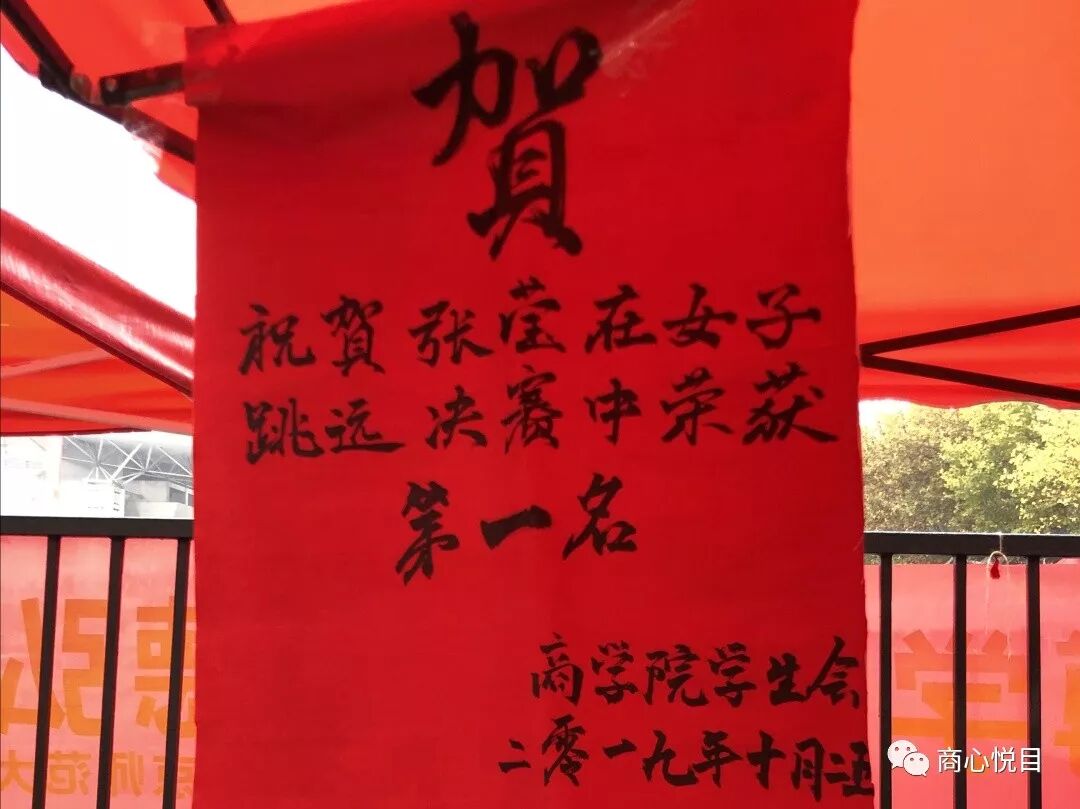 賀
祝賀张莹在女子
跳远决赛中荣获
第一名
商学院学生会
二零一九年十月二五
德弘
京师范大
学
商心悦目